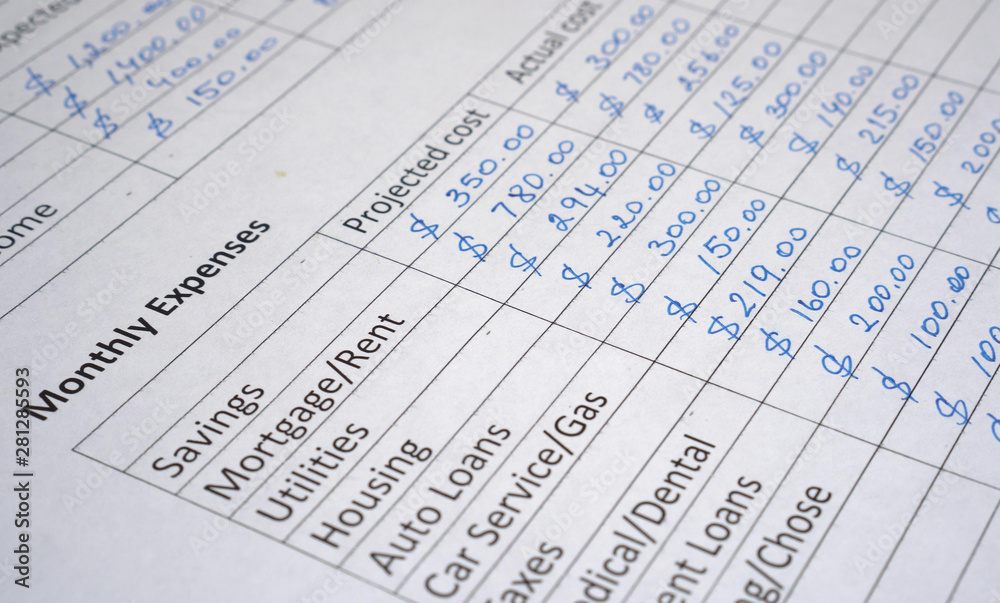 pected
$ 1,200.00
$ 1400.00
$ 400.00
$ 150.00
ome
Monthly Expenses
Projected cost Actual cost
Savings $ 350.00 $ 300.00
Mortgage/Rent $ 780.00 $ 780.00
Utilities $ 294.00 $ 256.00
Housing $ 220.00 $ 125.00
Auto Loans $ 300.00 $ 300.00
Car Service/Gas $ 150.00 $ 140.00
axes $ 219.00 $ 215.00
dical/Dental $ 160.00 $ 150.00
ent Loans $ 200.00 $ 200
g/Chose $ 100.00 $
$ 100
Adobe Stock | #281285593